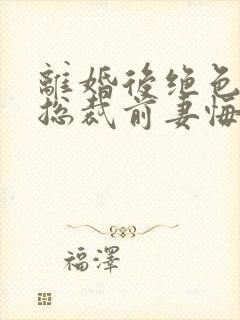 離婚後绝色
总裁前妻悔
福澤